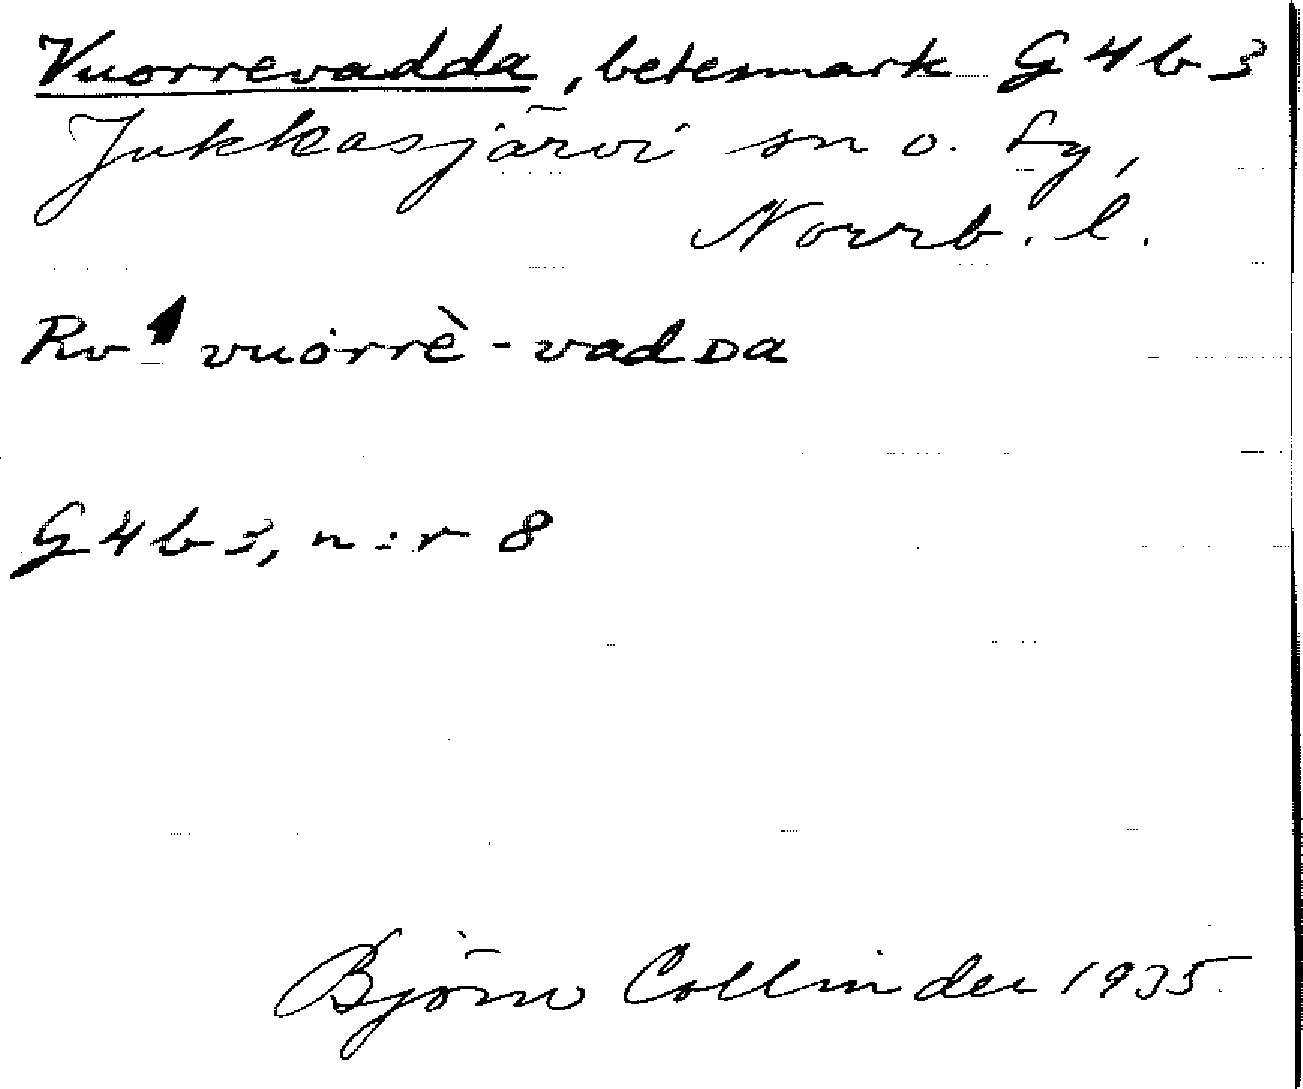 Vuorrevadda, betesmark G 4 b 3
Jukkasjärvi sn o. ty,
Norrb. l.
Rv vuòrrè-vadᴅa
G 4 b 3, n:r 8
Björn Collinder 1935